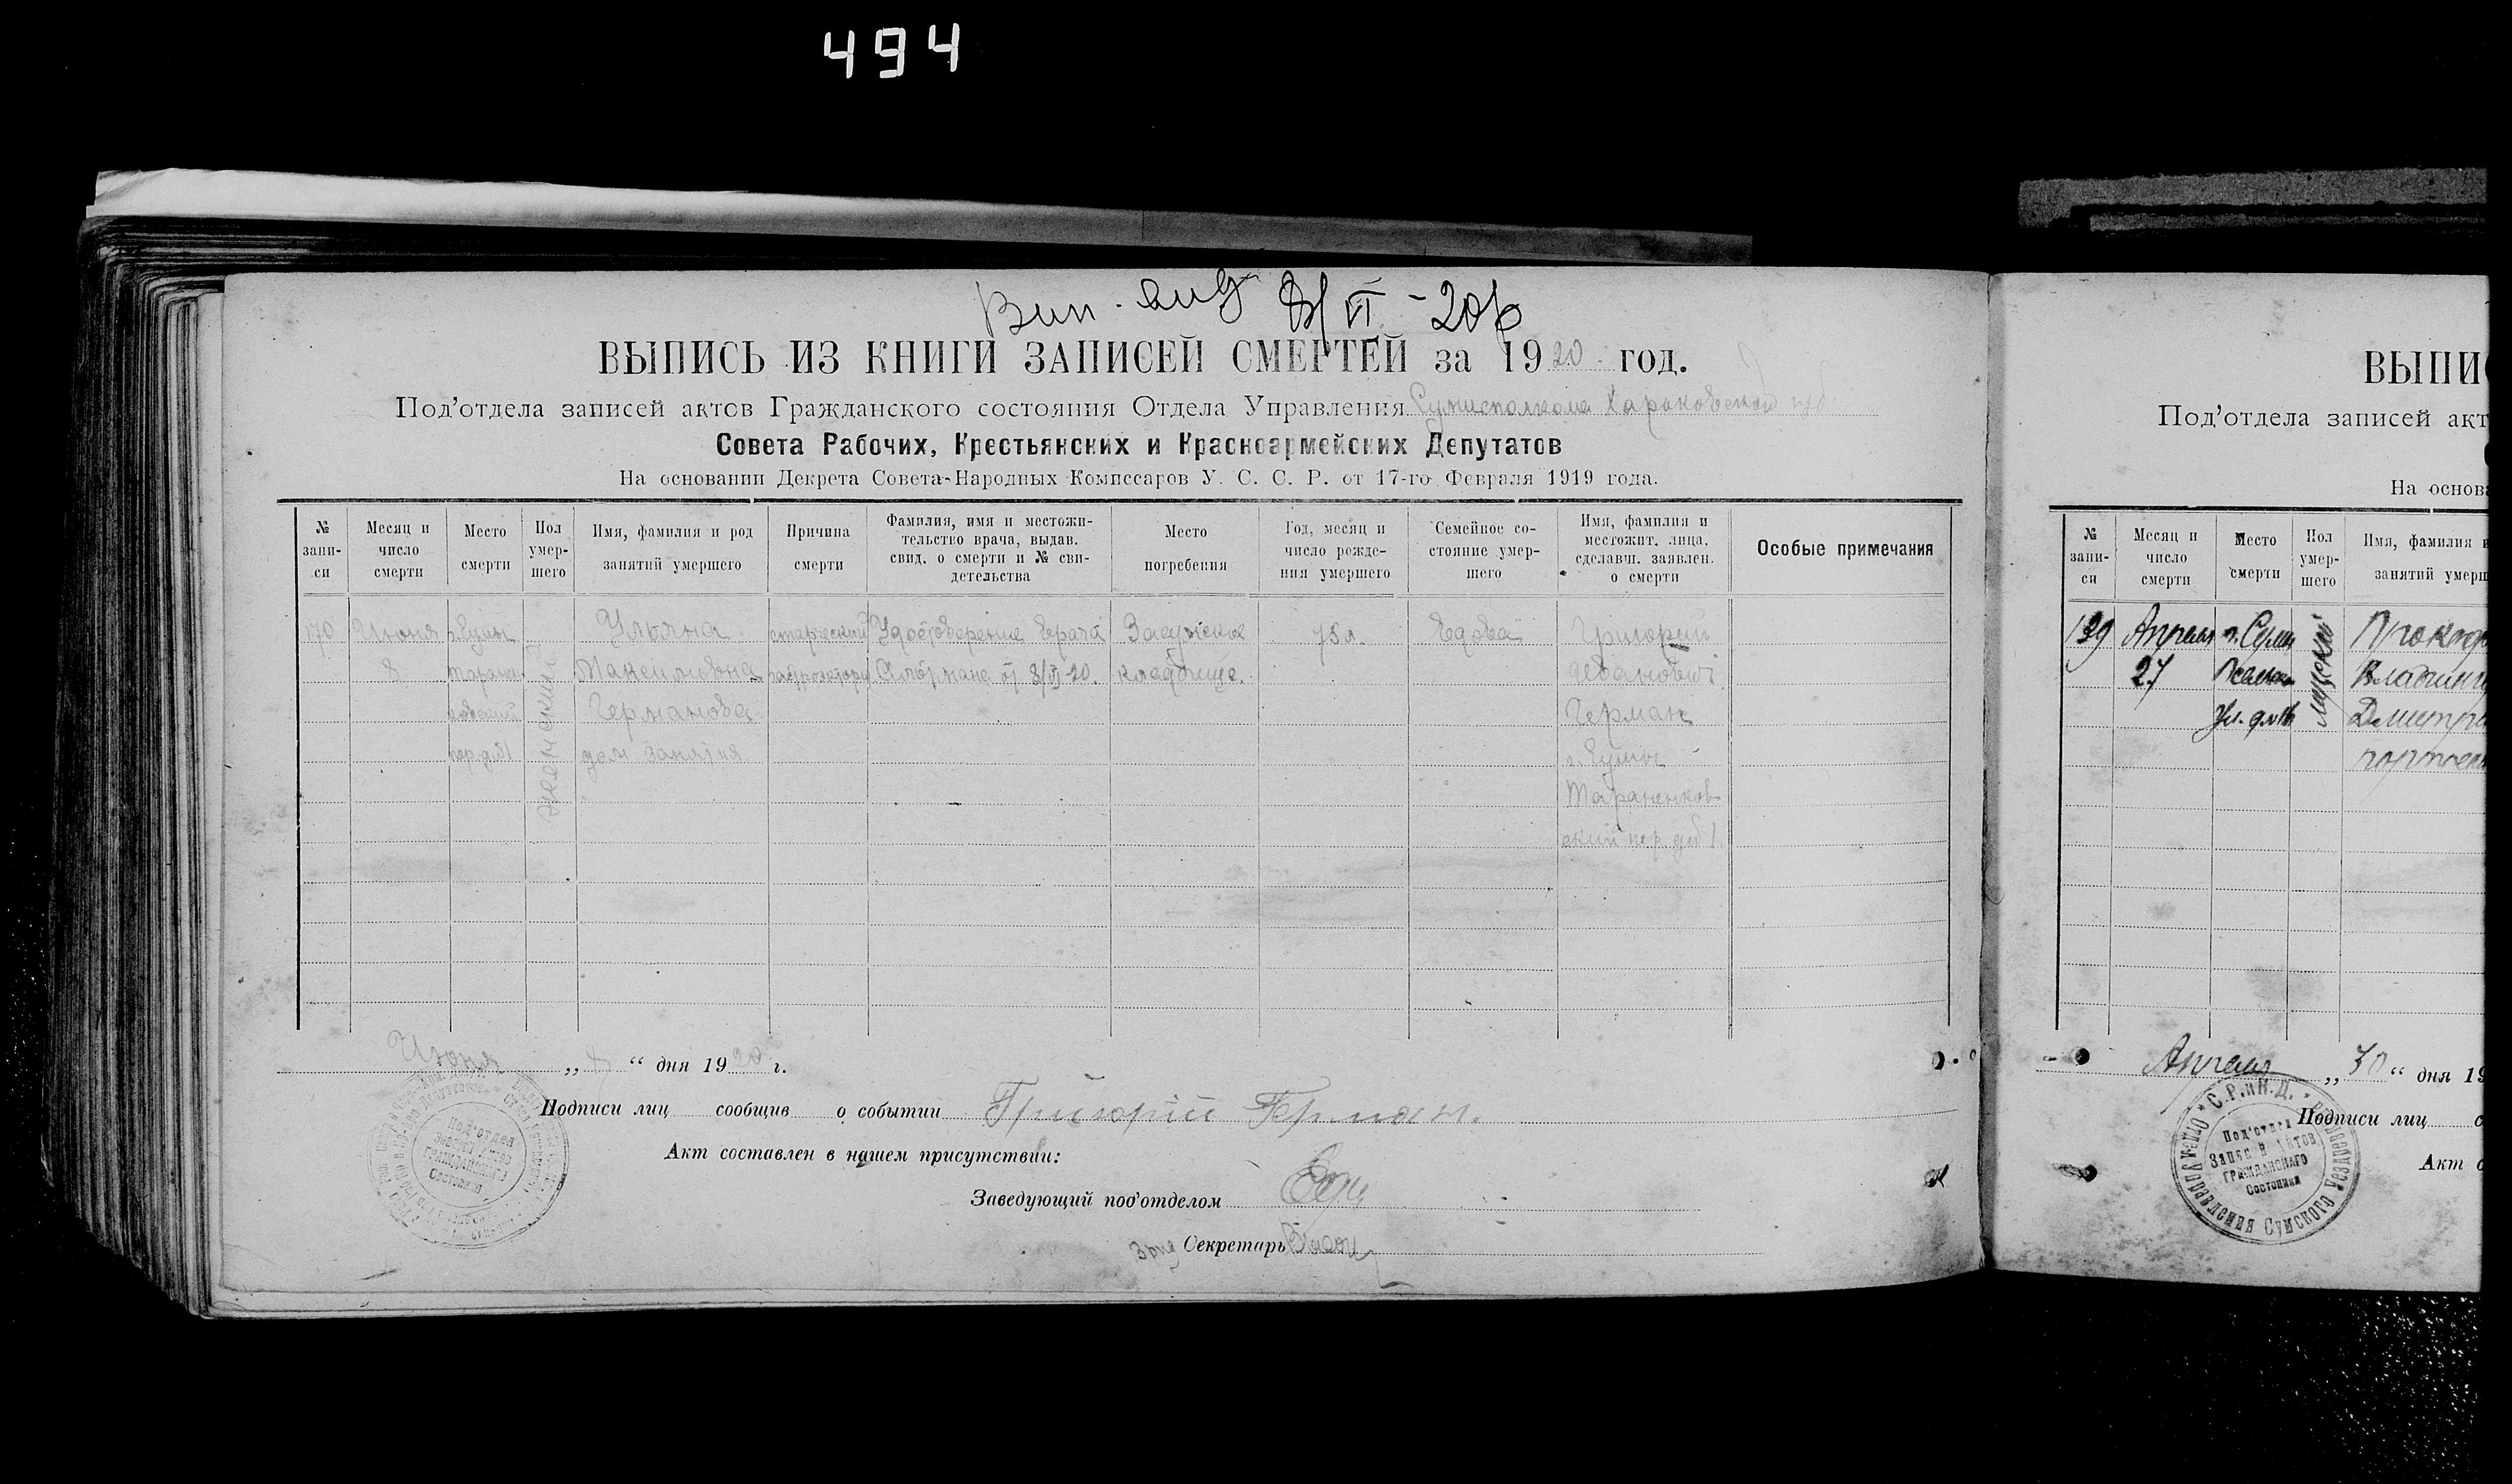 494
Вип. вид 8/VI - 20 р
ВЫПИСЬ ИЗ КНИГИ ЗАПИСЕЙ СМЕРТЕЙ за 1920 год.
Под'отдела записей актов Гражданского состояния Отдела Управления Сумисполкома Харьковской губ
Совета Рабочих, Крестьянских и Красноармейских Депутатов
На основании Декрета Совета Народных Комиссаров У. С. С. Р. от 17-го Февраля 1919 года.
№ запи-си
Месяц и число смерти
Место смерти
Пол умер-шего
Имя, фамилия и род занятий умершего
Причина смерти
Фамилия, имя и местожи-тельство врача, выдав. свид. о смерти и № сви-детельства
Место погребения
Год, месяц и число рожде-ния умершего
Семейное со-стояние умер-шего
Имя, фамилия и местожит. лица, сделавш. заявлен. о смерти
Особые примечания
170
Июня
8
г. Сумы
пер. д. №1
женский
Ульяна
Максимовна
Германова
дом. занятия
старческий
Удостоверение врача
от 8/VI-20.
Засумское
кладбище.
75 л.
Вдова
Григорий
Иванович
Герман
г. Сумы
Тараненков
ский пер. д №1
Июня „ 8 “ дня 1920 г.
Подписи лиц сообщив о событии Григорий Герман.
Акт составлен в нашем присутствии:
Заведующий под'отделом
Секретарь
Под'отдел
Записи Актов
Гражданского
Состояния
ВЫПИС
Под'отдела записей акт
На основа
№ запи-си
Месяц и число смерти
Место смерти
Пол умер-шего
Имя, фамилия и
занятий умерш
139
Апреля
27
г. Сумы
ул. д. №
мужской
Прокоф
Владимир
Дмитри
Апреля „ 30 “ дня 19
Подписи лиц с
Акт с
С.Р. и К.Д.
Отдел Управления Сумского Уездного
Под'отдел
Записи Актов
Гражданского
Состояния